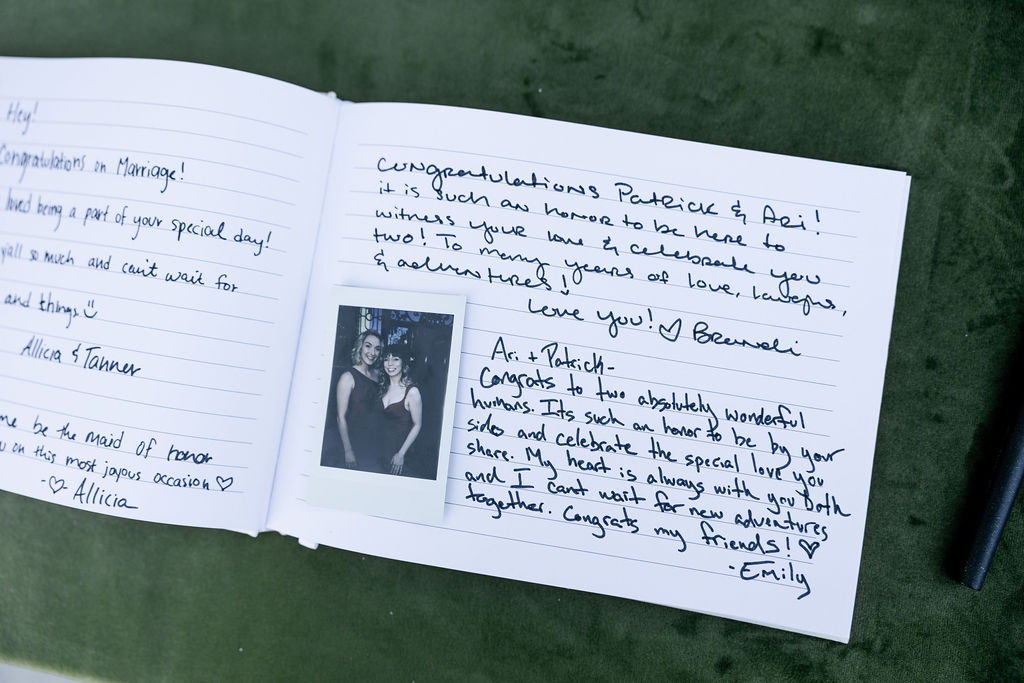 Hey!
Congratulations on Marriage!
loved being a part of your special day!
y'all so much and can't wait for
and things
Allicia & Tanner
me be the maid of honor
on this most joyous occasion ♡
-♡ Allicia
Congratulations Patrick & Ari!
it is such an honor to be here to
witness your love & celebrate you
two! To many years of love, laughs,
& adventures!
Love you! ♡ Brandi
Ari + Patrick-
Congrats to two absolutely wonderful
humans. Its such an honor to be by your
side and celebrate the special love you
share. My heart is always with you both
and I cant wait for new adventures
together. Congrats my friends! ♡
-Emily